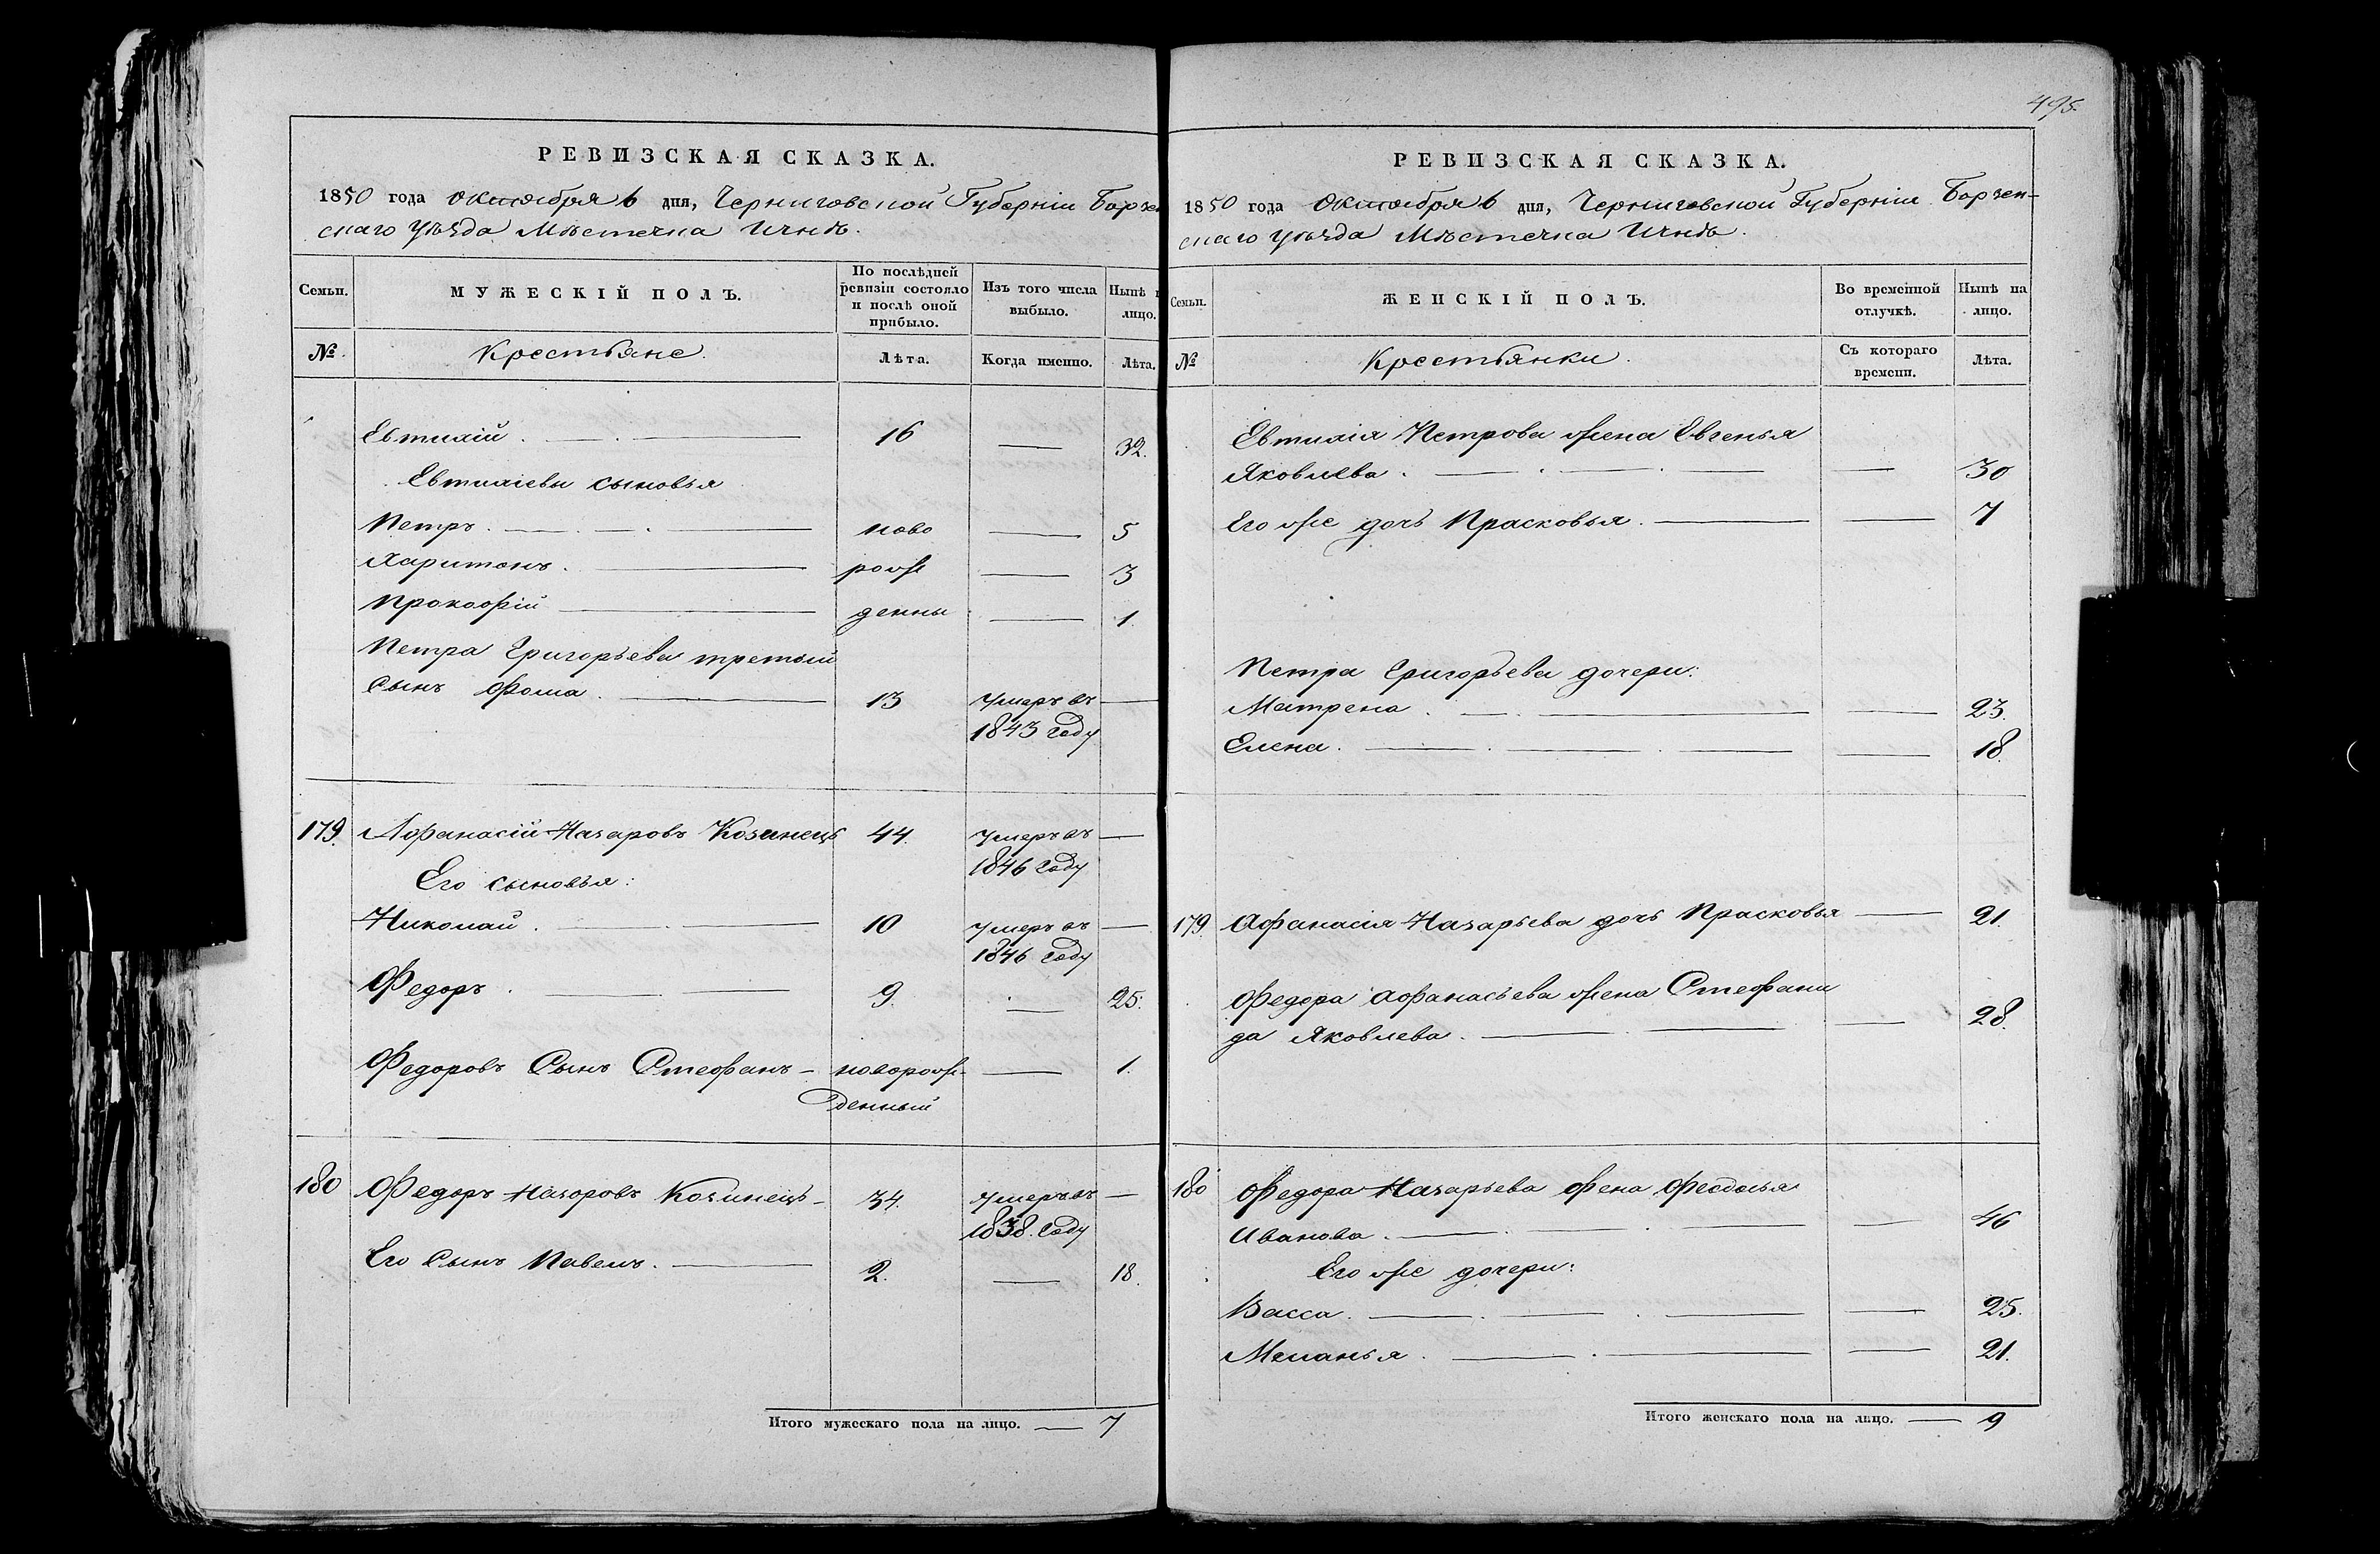 495.
РЕВИЗСКАЯ СКАЗКА.
1850 года Октоября 6 дня, Черниговской Губерніи Борзен
скаго уѣзда Мѣстечка Ичнѣ.
Семьи. МУЖЕСКІЙ ПОЛЪ. По послѣдней ревизіи состояло и послѣ оной прибыло. Изъ того числа выбыло. Нынѣ лицо.
№ Крестьяне. Лѣта. Когда именно. Лѣта.
Евтихій. 16 — 32.
Евтихіевы сыновья
Петръ. ново — 5
Харитонъ. рож — 3
Прокофій денны — 1.
Петра Григорьева третій
сынъ Фома. 13 умеръ въ —
1843 году
179. Афанасій Назаровъ Козинецъ 44. умеръ въ —
1846 году
Его сыновья:
Николай. 10 умеръ въ —
1846 году
Федоръ. 9. — 25.
Федоровъ Сынъ Стефанъ —новорож- — 1.
денный
180 Федоръ Назаровъ Козинецъ — 34. умеръ въ —
1838. году
Его Сынъ Павелъ. 2. — 18.
Итого мужескаго пола на лицо. — 7
РЕВИЗСКАЯ СКАЗКА.
1850 года Октоября 6 дня, Черниговской Губерніи Борзен-
скаго уѣзда Мѣстечка Ичнѣ.
Семьи. ЖЕНСКІЙ ПОЛЪ. Во временной отлучкѣ. Нынѣ на лицо.
№ Крестьянки. Съ котораго времени. Лѣта.
Евтихія Петрова жена Евгенья
Яковлева. — 30
Его же дочь Прасковья. — 7
Петра Григорьева дочери:
Матрена — 23.
Елена. — 18.
179. Афанасія Назарьева дочь Прасковья — 21.
Федора Афанасьева жена Стефани
да Яковлева. — 28.
180 Федора Назарьева жена Феодосья
Иванова. — 46
Его же дочери:
Васса. — 25.
Меланья. — 21.
Итого женскаго пола на лицо. — 9